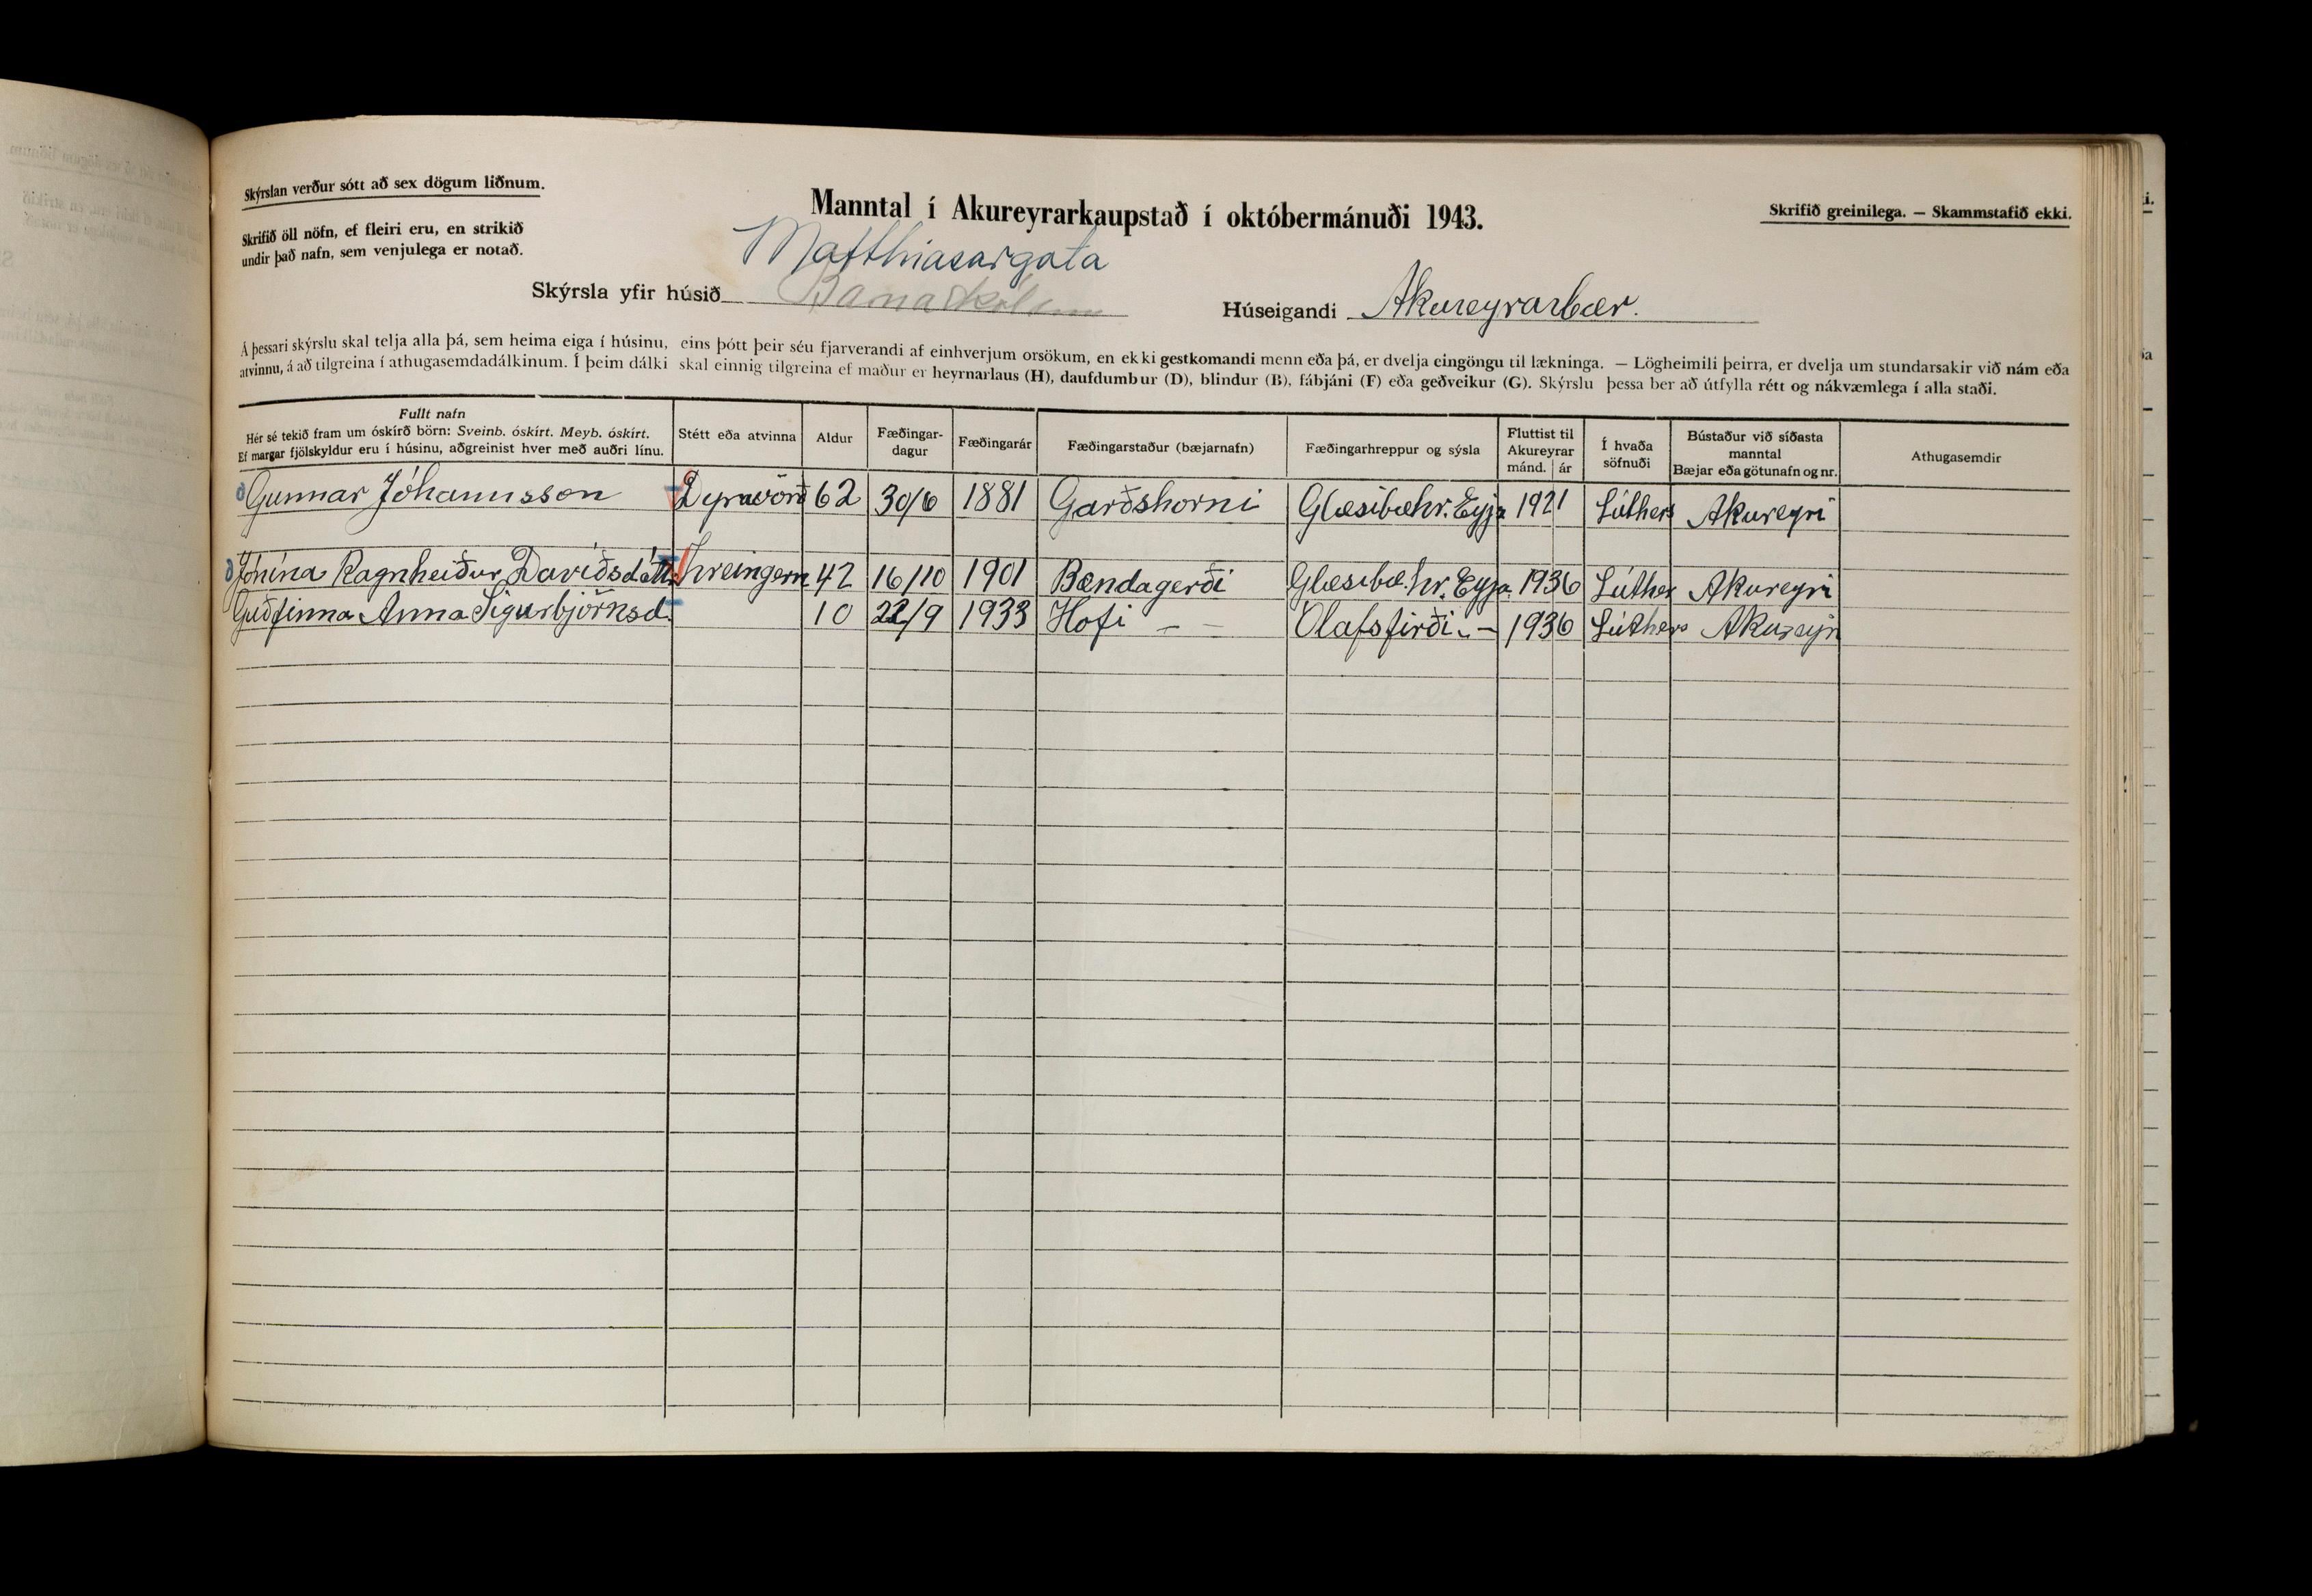 Skýrslan verður sótt að sex dögum liðnum.
Skrifið öll nöfn, ef fleiri eru, en strikið
undir það nafn, sem venjulega er notað.
Manntal í Akureyrarkaupstað í októbermánuði 1943.
Skrifið greinilega. — Skammstafið ekki.
Matthiasargata
Skýrsla yfir húsið Barnaskólinn
Húseigandi Akureyrarbær.
Á þessari skýrslu skal telja alla þá, sem heima eiga í húsinu, eins þótt þeir séu fjarverandi af einhverjum orsökum, en ekki gestkomandi menn eða þá, er dvelja eingöngu til lækninga. — Lögheimili þeirra, er dvelja um stundarsakir við nám eða
atvinnu, á að tilgreina í athugasemdadálkinum. Í þeim dálki skal einnig tilgreina ef maður er heyrnarlaus (H), daufdumbur (D), blindur (B), fábjáni (F) eða geðveikur (G). Skýrslu þessa ber að útfylla rétt og nákvæmlega í alla staði.
Fullt nafn
Hér sé tekið fram um óskírð börn: Sveinb. óskírt. Meyb. óskírt.
Ef margar fjölskyldur eru í húsinu, aðgreinist hver með auðri línu.
Stétt eða atvinna
Aldur
Fæðingar-
dagur
Fæðingarár
Fæðingarstaður (bæjarnafn)
Fæðingarhreppur og sýsla
Fluttist til
Akureyrar
mánd. ár
Í hvaða
söfnuði
Bústaður við síðasta
manntal
Bæjar eða götunafn og nr.
Athugasemdir
ð Gunnar Jóhannsson Dyravörð 62 30/6 1881 Garðshorni Glæsibæhr. Eyja 1921 Lúthers Akureyri
ð Jónína Ragnheiður Davíðsdótt hreingern 42 16/10 1901 Bændagerði Glæsibæ.hr. Eyja. 1936 Lúther Akureyri
Guðfinna Anna Sigurbjörnsd. 10 22/9 1933 Hofi — — Ólafsfirði. — 1936 Lúthers Akureyri